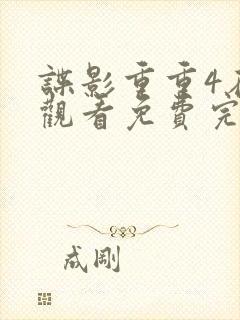 諜影重重4
觀看免費完
成剛